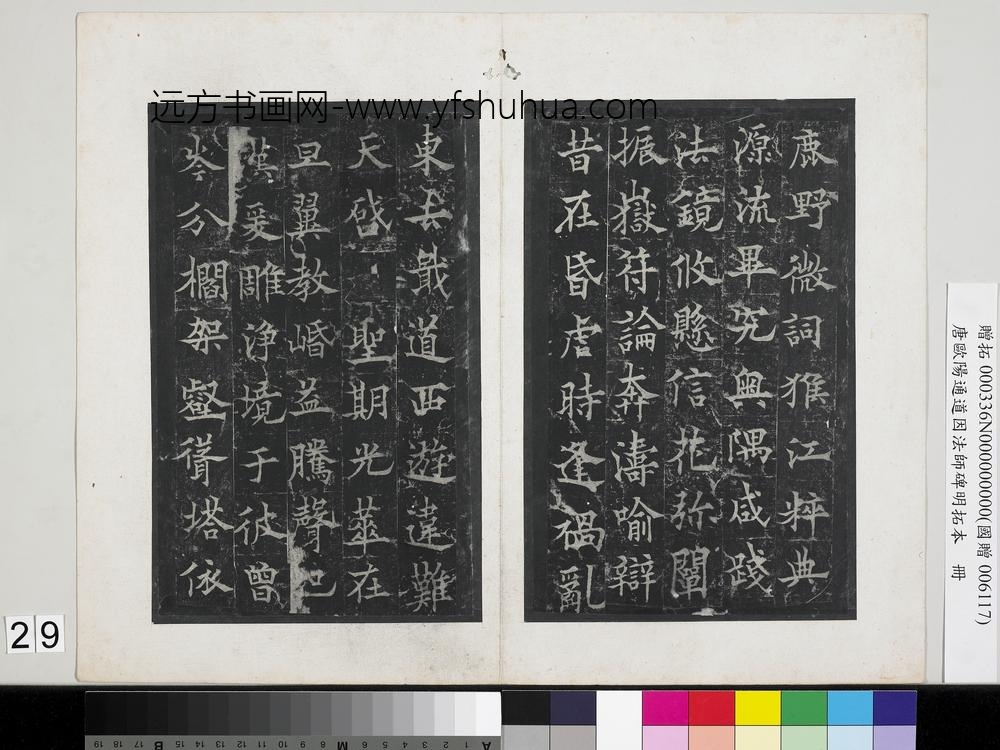 远方书画网-www.yfshuhua.com
鹿野微詞猴江粹典
源流畢究奥隅咸踐
法鏡攸懸信花弥闡
振嶽符論奔濤喻辯
昔在昏虐時逢禍亂
東去戢道西遊違難
天啓聖期光華在
旦翼教緇益騰聲
爰雕淨境于彼曾
岑分櫩架壑聳塔依
贈拓 000336N000000000(國贈 006117)
唐歐陽通道因法師碑明拓本 冊
29
19 18 17 16 15 14 13 12 11 10 9 8 7 6 5 4 3 2 1
B M A